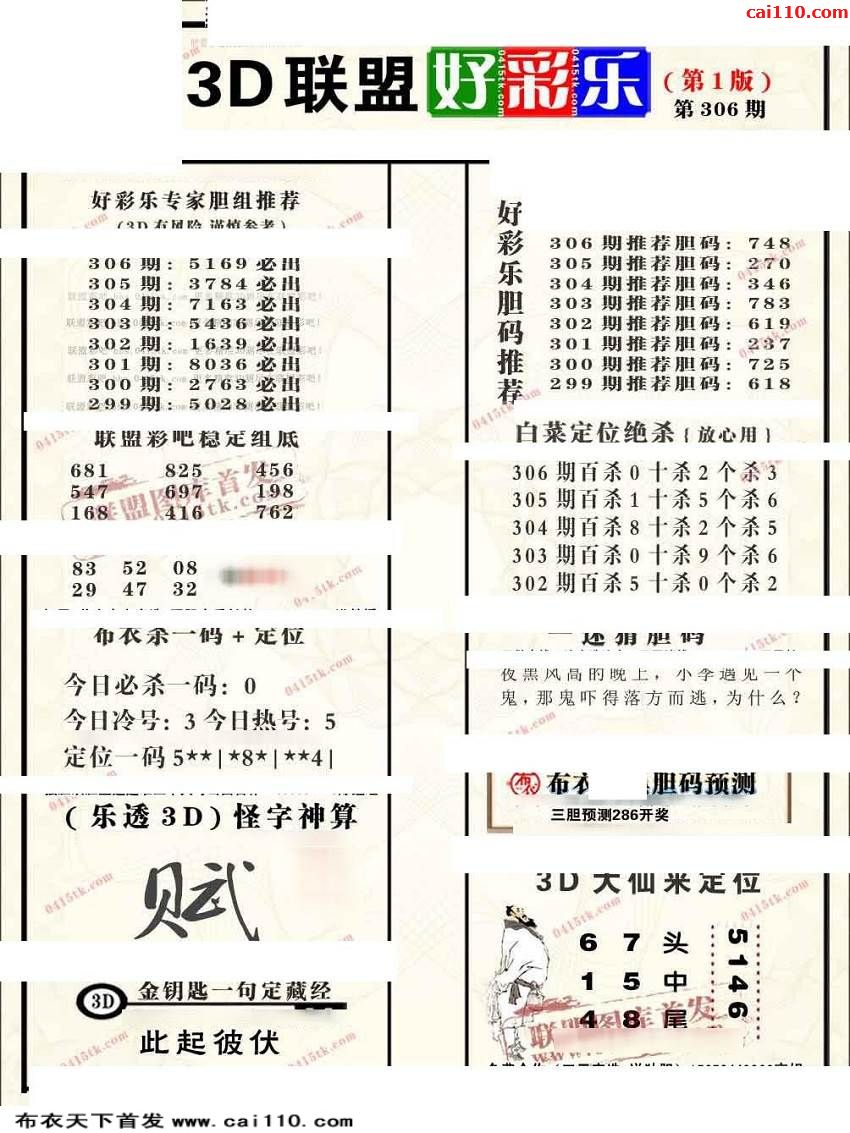 cai110.com
3D联盟 好彩乐 (第1版)
第306期
好彩乐专家胆组推荐
(3D有风险 谨慎参考)
306期：5169必出
305期：3784必出
304期：7163必出
303期：5436必出
302期：1639必出
301期：8036必出
300期：2763必出
299期：5028必出
联盟彩吧稳定组底
681 825 456
547 697 198
168 416 762
83 52 08
29 47 32
布衣杀一码+定位
今日必杀一码：0
今日冷号：3 今日热号：5
定位一码 5**|*8*|**4|
(乐透3D)怪字神算
赋
3D 金钥匙一句定藏经
此起彼伏
好彩乐胆码推荐
306期推荐胆码：748
305期推荐胆码：270
304期推荐胆码：346
303期推荐胆码：783
302期推荐胆码：619
301期推荐胆码：237
300期推荐胆码：725
299期推荐胆码：618
白菜定位绝杀{放心用}
306期百杀0十杀2个杀3
305期百杀1十杀5个杀6
304期百杀8十杀2个杀5
303期百杀0十杀9个杀6
302期百杀5十杀0个杀2
一迷猜胆码
夜黑风高的晚上，小李遇见一个
鬼，那鬼吓得落方而逃，为什么？
布衣 胆码预测
三胆预测286开奖
3D大仙来定位
6 7 头
1 5 中
4 8 尾
5146
联盟图库首发
0415tk.com
布衣天下首发 www.cai110.com